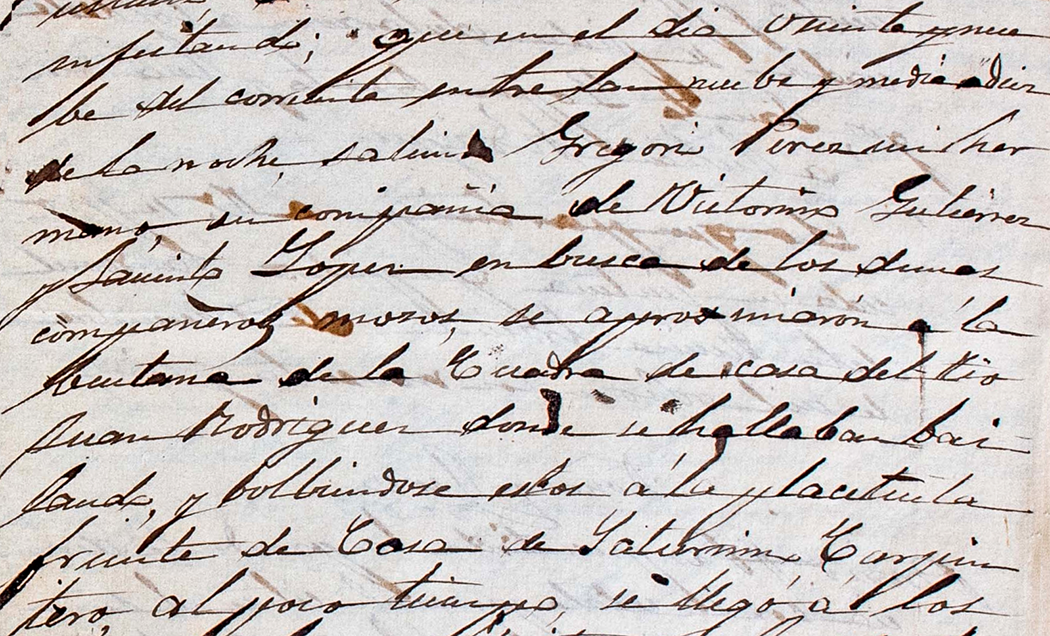 nifestando; que en el dia veinte y nue
be del corriente entre las nuebe y media a diez
de la noche, salimos Gregorio Perez mi her
mano, en compañia de Victorino Gutierrez
y Jacinto Lopez en busca de los demas
compañeros mozos, se aproximaron á la
bentana de la Cuadra de casa del tio
Juan Rodriguez donde se hallaban bai-
lando, y bolbiendose estos á la placetuela
frente de Casa de Saturnino Carpin
tero, al poco tiempo, se llegó á los